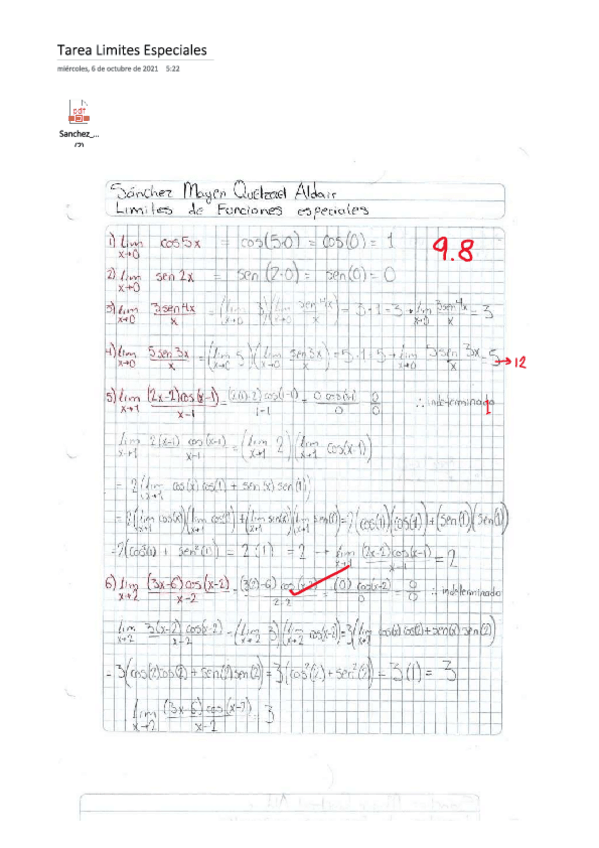 Tarea Limites Especiales
miércoles, 6 de octubre de 2021 5:22
Sanchez_...
(2)
Sánchez Mayen Quetzael Aldair
Limites de Funciones especiales
1) lim x→0 cos 5x = cos(5·0) = cos(0) = 1
9.8
2) lim x→0 sen 2x = sen (2·0) = sen(0) = 0
3) lim x→0 3sen4x/x = (lim x→0 3)(lim x→0 sen4x/x) = 3·1 = 3 · lim x→0 3sen4x/x = 3
4) lim x→0 5sen3x/x = (lim x→0 5)(lim x→0 sen3x/x) = 5·1 5 → lim x→0 5sen3x/x = 5 → 12
5) lim x→1 (2x-2)cos(x-1)/x-1 = 0/0 ∴ indeterminado
lim x→1 2(x-1) cos(x-1)/x-1 = (lim x→1 2)(lim x→1 cos(x-1))
= 2(lim x→1 cos(x) cos(1) + sen(x) sen(1))
= 2(cos(1))(cos(1)) + (sen(1))(sen(1))
= 2(cos²(1) + sen²(1)) = 2(1) = 2 → lim x→1 (2x-2)cos(x-1)/x-1 = 2
6) lim x→2 (3x-6)cos(x-2)/x-2 = (3(2)-6) cos(x-2)/2-2 = (0) cos(x-2)/0 = 0/0 ∴ indeterminado
lim x→2 3(x-2) cos(x-2)/x-2 = (lim x→2 3)(lim x→2 cos(x-2)) = 3(lim x→2 cos(x) cos(2) + sen(x) sen(2))
= 3(cos(2)cos(2) + sen(2)sen(2)) = 3(cos²(2) + sen²(2)) = 3(1) = 3
lim x→2 (3x-6)cos(x-2)/x-2 = 3